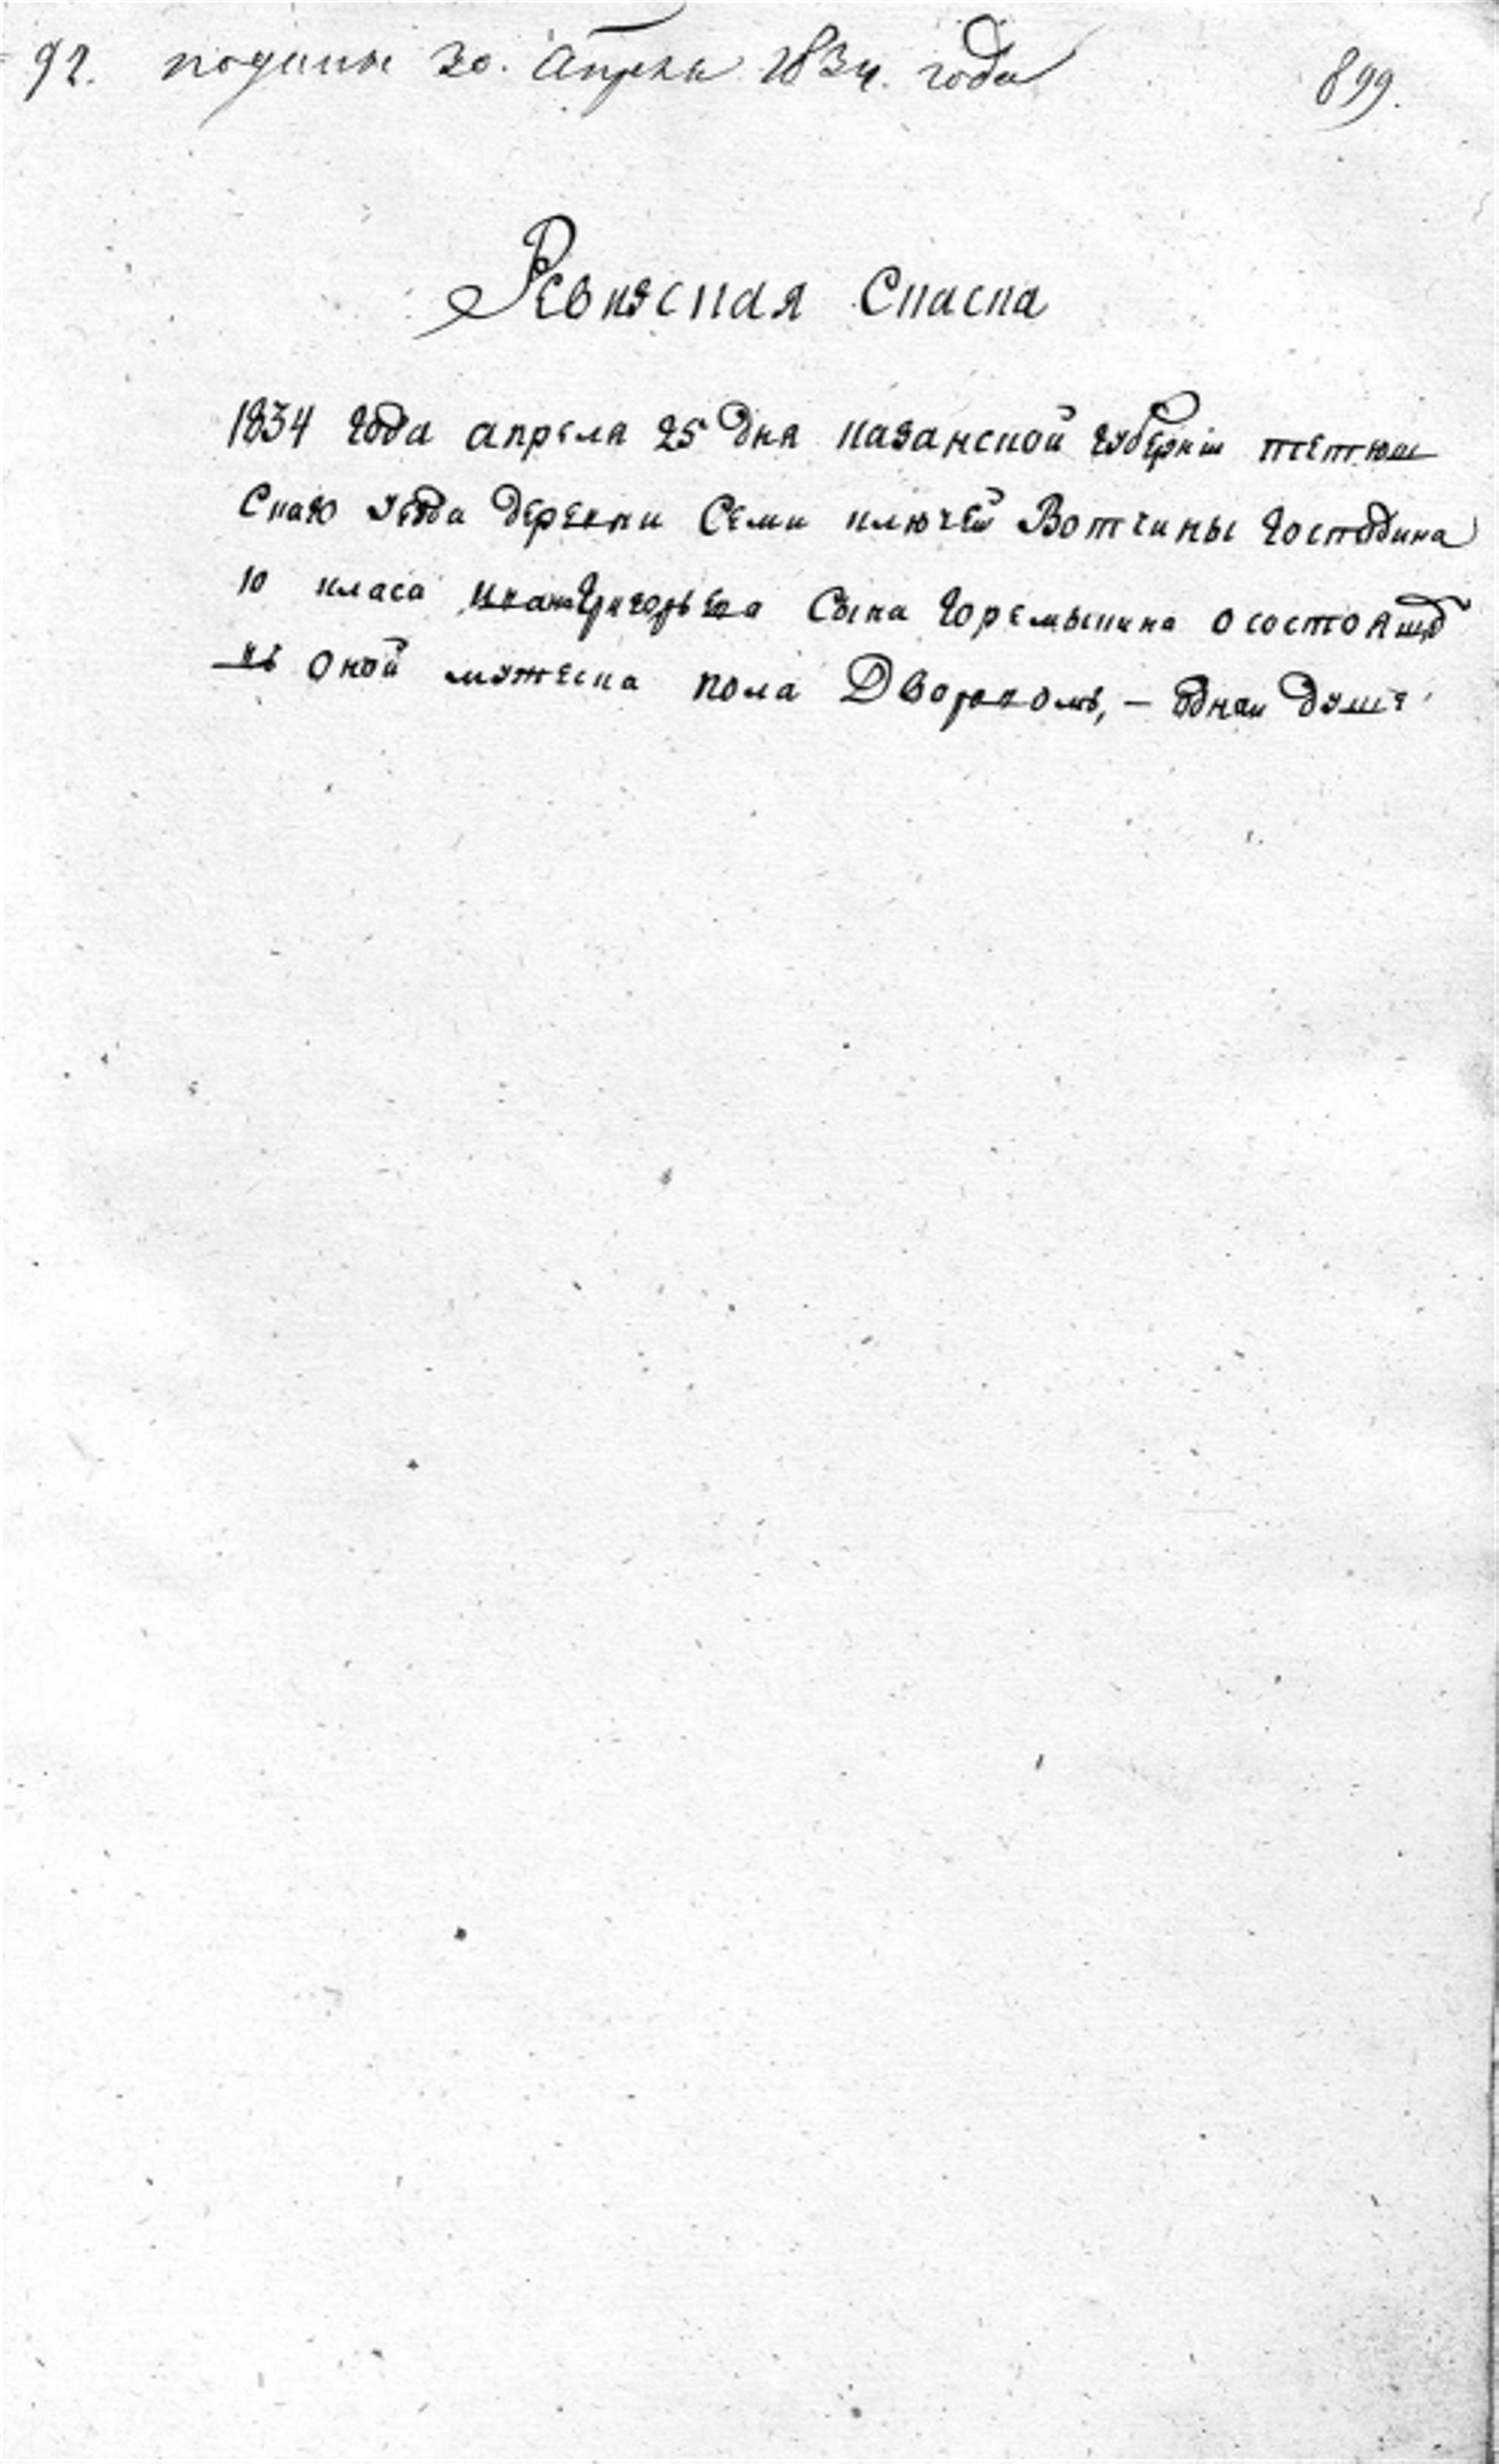 92. подана 30. Апреля 1834. года 899.
Ревизская Спаска
1834 года апреля 25 дня казанской губернiи тетюш
Скаго уезда деревни Семи ключей Вотчины Господина
10 класа Ивана Григорьева Сына Горемыкина о состоящ
въ оной мужеска пола Дворовомъ, — одной душе